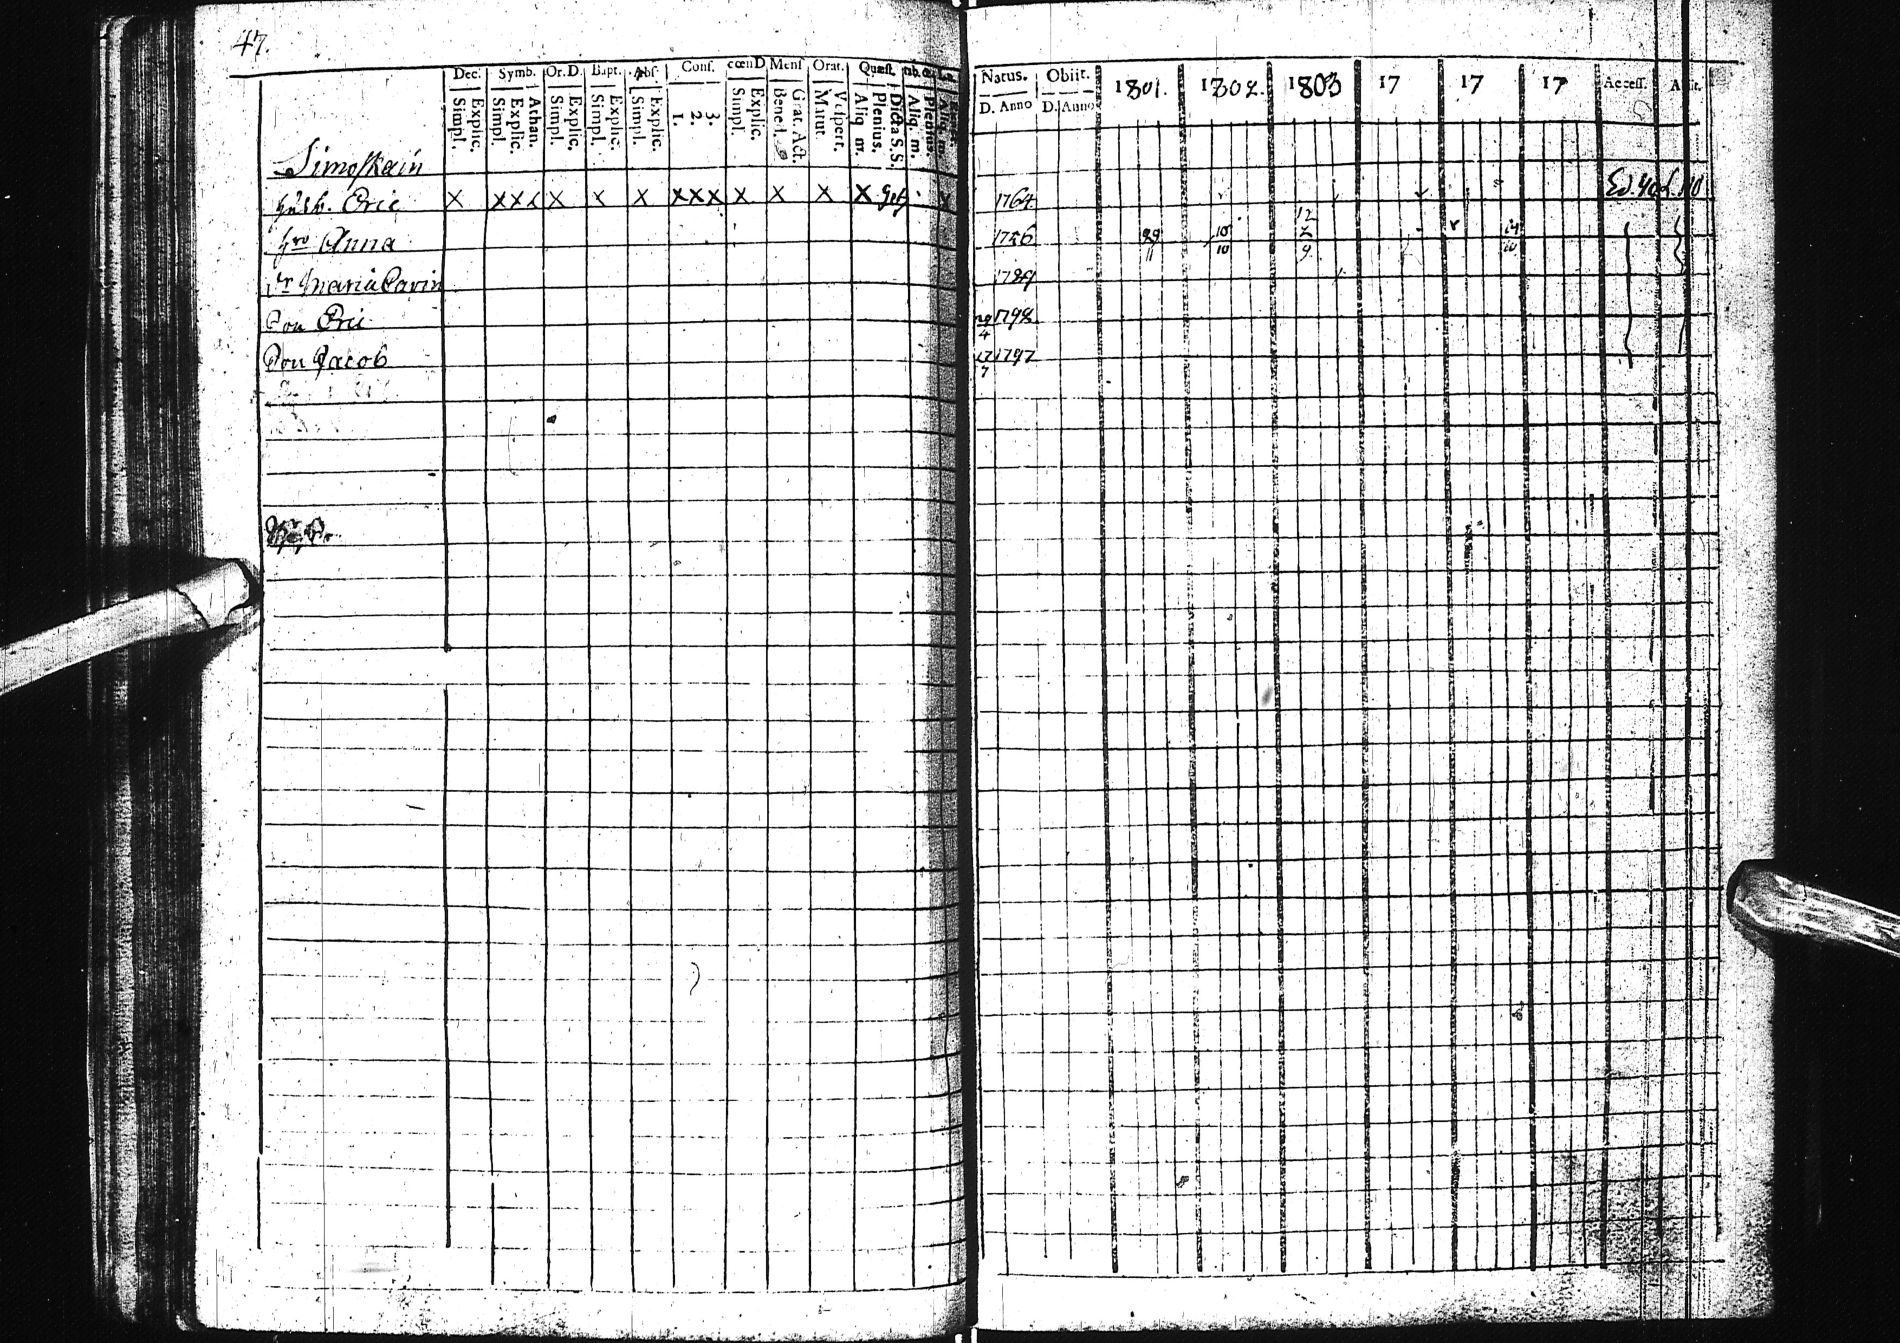 47.
Dec. Symb. Or.D. Bapt. Abs. Conf. cœnD Mens Orat. Quæst.
Simpl. Explic. Simpl. Explic. Athan. Simpl. Explic. Simpl. Explic. Simpl. Explic. 1. 2. 3. Simpl. Explic. Bened. Grat. Act. Matut. Vespert. Aliq m. Plenius. Dicta S.S. Aliq. m. Plenius. Aliq. m.
Natus. Obiit. 1801. 1802. 1803 17 17 17 Access. Abit.
D. Anno D. Anno
Simoskain
Husb. Eric X XXX X X X XXX X X X X 1764
hru Anna 1756 29/11 10/10
dr Maria Carin 1789
Son Eric 1798
Son Jacob 17/7 1797